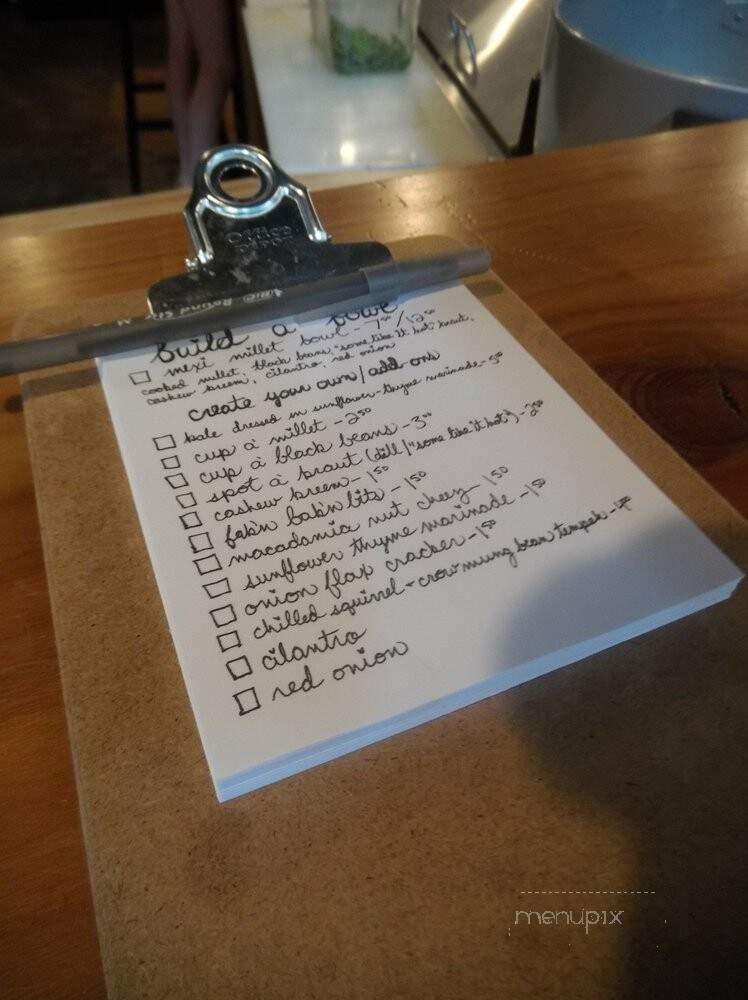 OFFICE DEPOT
BIC Round Stic M
build a bowl
mexi millet bowl - 7⁵⁰/12⁵⁰
cooked millet, black beans, "some like it hot" kraut,
cashew kreem, cilantro, red onion
create your own/add ons
kale dressed in sunflower-thyme marinade - 5⁰⁰
cup a' millet - 2⁵⁰
cup a' black beans - 3⁰⁰
spot a' kraut (dill/"some like it hot") - 2⁰⁰
cashew kreem - 1⁵⁰
fak'n bak'n bits - 1⁵⁰
macadamia nut cheez - 1⁵⁰
sunflower thyme marinade - 1⁵⁰
onion flax cracker - 1⁵⁰
chilled squirrel + crow mung bean tempeh - 4⁰⁰
cilantro
red onion
menupix